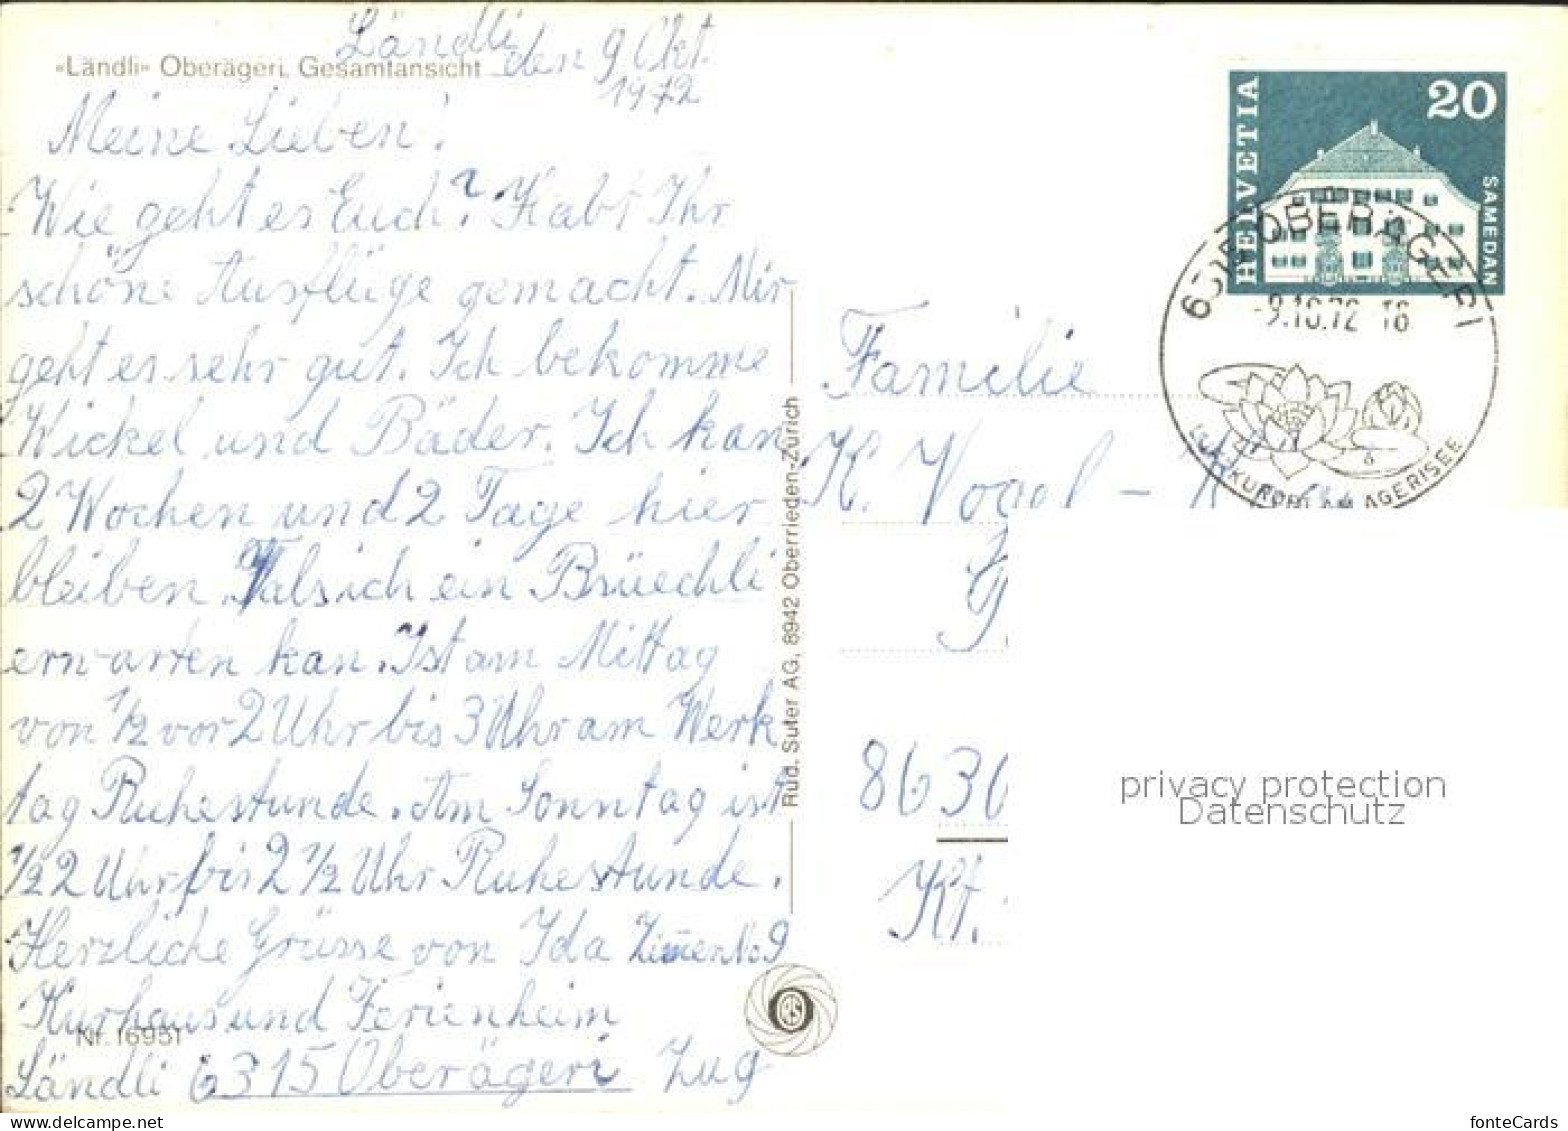 Ländli den 9 Okt.
1972
«Ländli» Oberägeri, Gesamtansicht
Meine Lieben!
Wie geht es Euch? Habt Ihr
schöne Ausflüge gemacht. Mir
geht es sehr gut. Ich bekomme
Wickel und Bäder. Ich kan
2 Wochen und 2 Tage hier
bleiben. Fals ich ein Brüechli
erwarten kan. Ist am Mittag
von 1/2 vor 2 Uhr bis 3 Uhr am Werk
tag Ruhestunde. Am Sonntag ist
1/2 2 Uhr bis 2 1/2 Uhr Ruhestunde.
Herzliche Grüsse von Ida Zimmer No 9
Kurhaus und Ferienheim
Nr. 16951
Ländli 6315 Oberägeri Zug
Rud. Suter AG, 8942 Oberrieden-Zürich
HELVETIA
20
SAMEDAN
OBERÄGERI
-9.10.72 18
KURORT AM AGERISEE
Familie
K. Vogel -
8630
Kt.
privacy protection
Datenschutz
www.delcampe.net
fonteCards